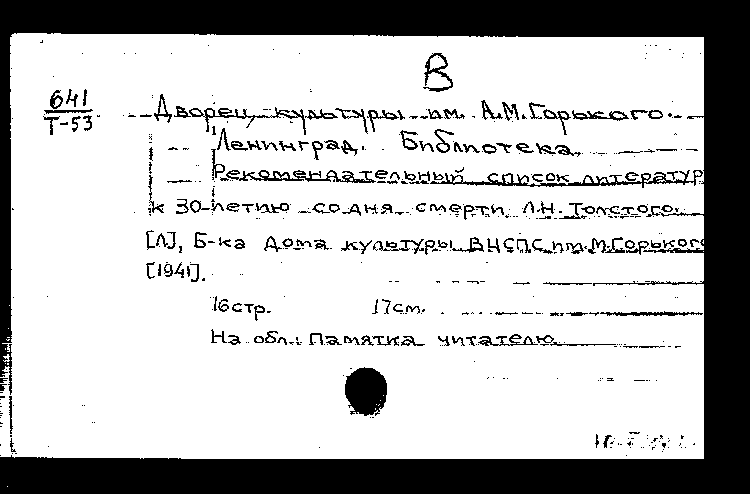 В
641
Т-53
Дворец культуры им. А.М.Горького.
Ленинград. Библиотека.
Рекомендательный список литератур
к 30-летию со дня смерти Л.Н.Толстого.
[Л], Б-ка Дома культуры ВЦСПС им.М.Горького
[1941].
16стр. 17см.
На обл.: Памятка читателю